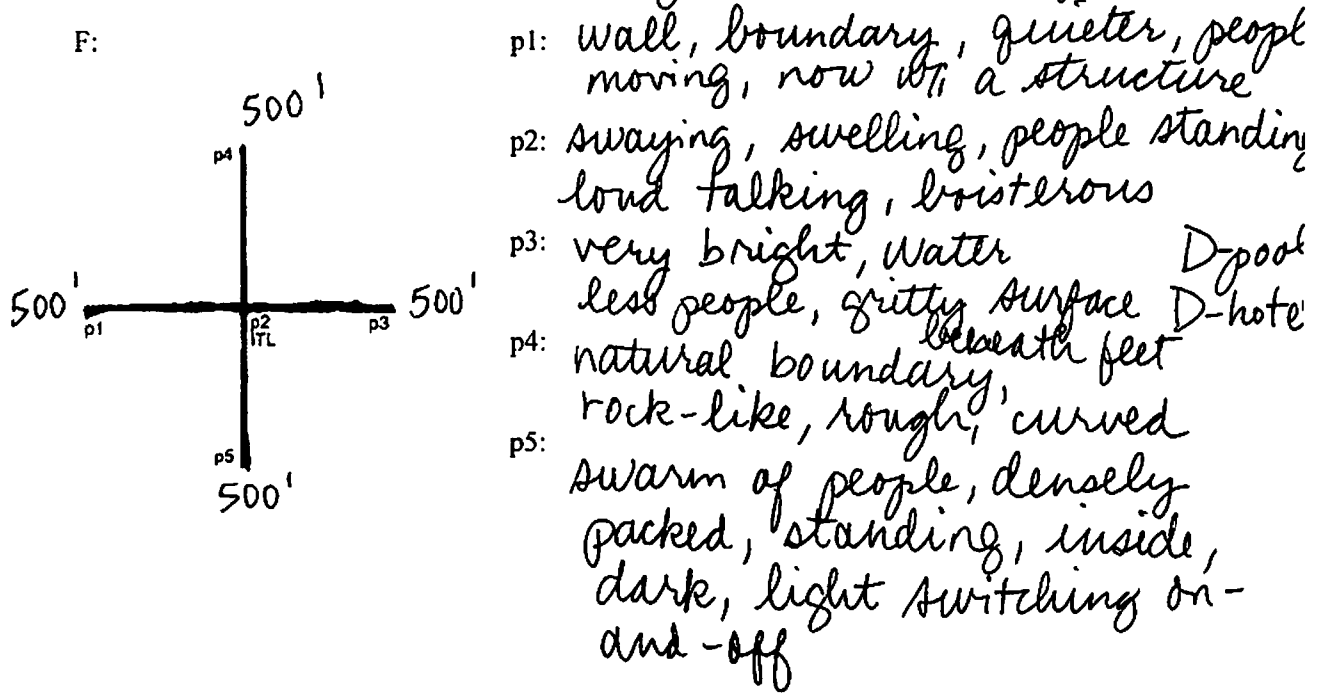 F:
500'
p4
500'
p1
p2
TL
p3
500'
p5
500'
p1: wall, boundary, quieter, peopl
moving, now w/i a structure
p2: swaying, swelling, people standing
loud talking, boisterous
p3: very bright, water D-pool
less people, gritty surface D-hote
beneath feet
p4: natural boundary,
rock-like, rough, curved
p5:
swarm of people, densely
packed, standing, inside,
dark, light switching on-
and-off